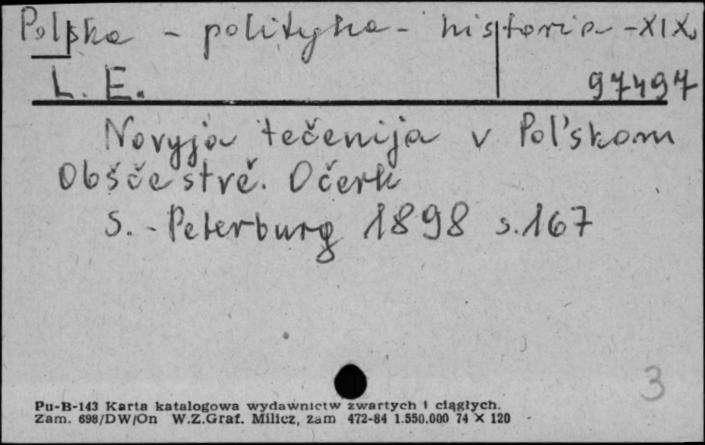 Polska - polityka - historia - XIX
L. E. 97497
Novyja tečenija v Pol'skom
Obščestvě. Očerk
S.-Peterburg 1898 s. 167
3
Pu-B-143 Karta katalogowa wydawnictw zwartych i ciągłych.
Zam. 698/DW/On W.Z.Graf. Milicz, zam 472-84 1.550.000 74 X 120